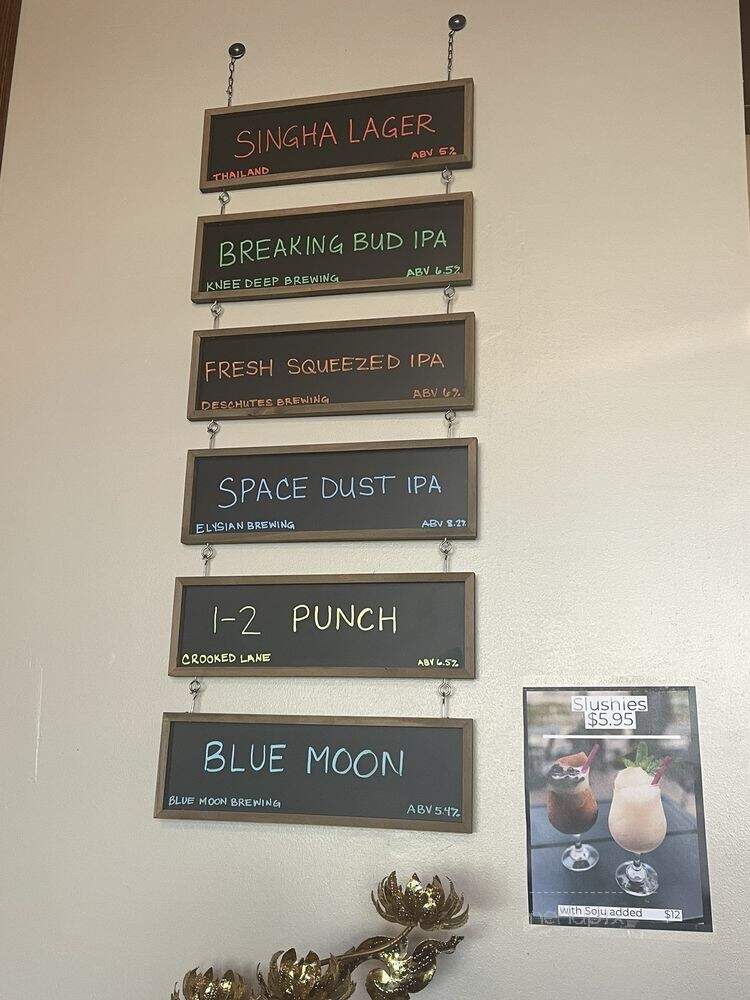 SINGHA LAGER
THAILAND ABV 5%
BREAKING BUD IPA
KNEE DEEP BREWING ABV 6.5%
FRESH SQUEEZED IPA
DESCHUTES BREWING ABV 6%
SPACE DUST IPA
ELYSIAN BREWING ABV 8.2%
1-2 PUNCH
CROOKED LANE ABV 6.5%
BLUE MOON
BLUE MOON BREWING ABV 5.4%
Slushies
$5.95
with Soju added $12